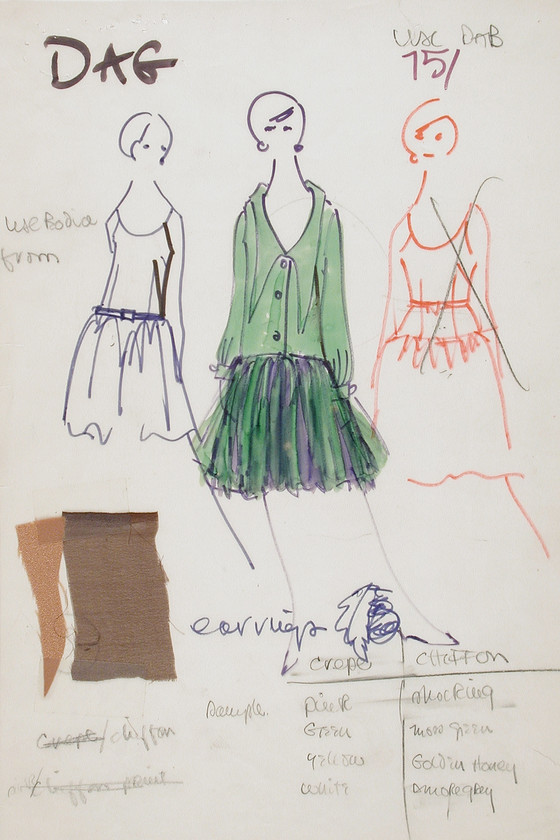 DAG
use DAB
75/
use Bodice
from
earrings
crepe chiffon
Sample. pink shocking
Green moss green
yellow Golden Honey
white smoke grey
crepe/chiffon
chiffon print